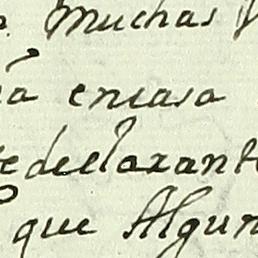 Muchas
encasa
edeclarant
que Algun